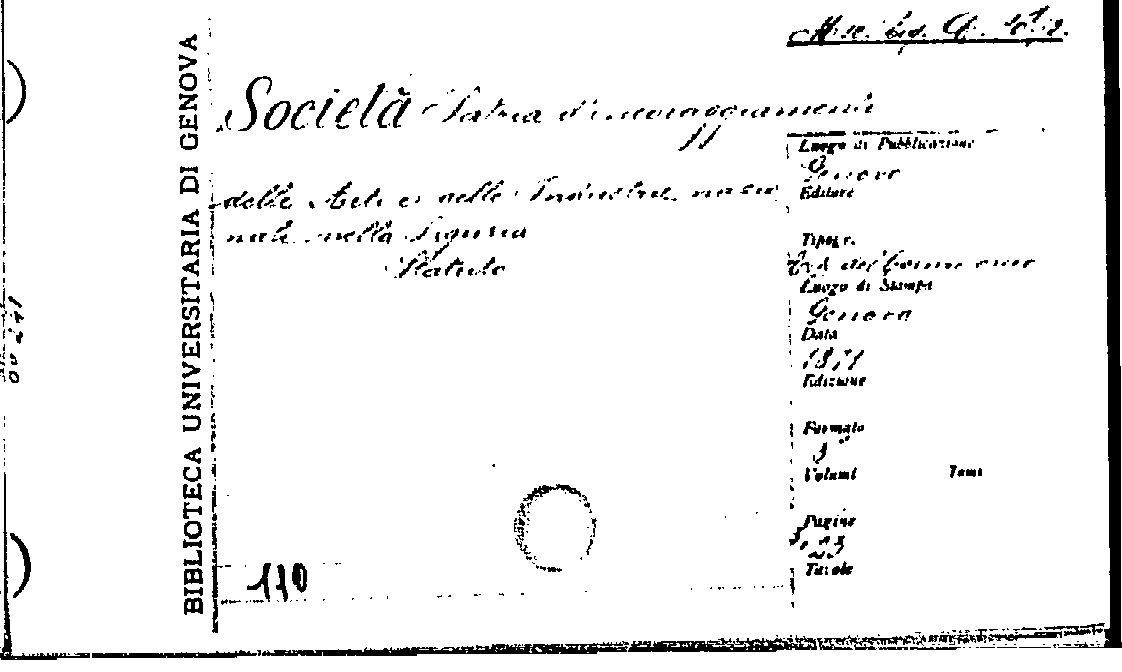 Misc. Lig. A. 10.12.
Società Patria d'incoraggiamento
delle Arti e delle Industrie nazio
nali nella Liguria
Statuto
Luogo di Pubblicazione
Genova
Editore
Tipogr.
Tip. del Commercio
Luogo di Stampa
Genova
Data
1851
Edizione
Formato
8°
Volumi Tomi
Pagine
23
Tavole
110
BIBLIOTECA UNIVERSITARIA DI GENOVA